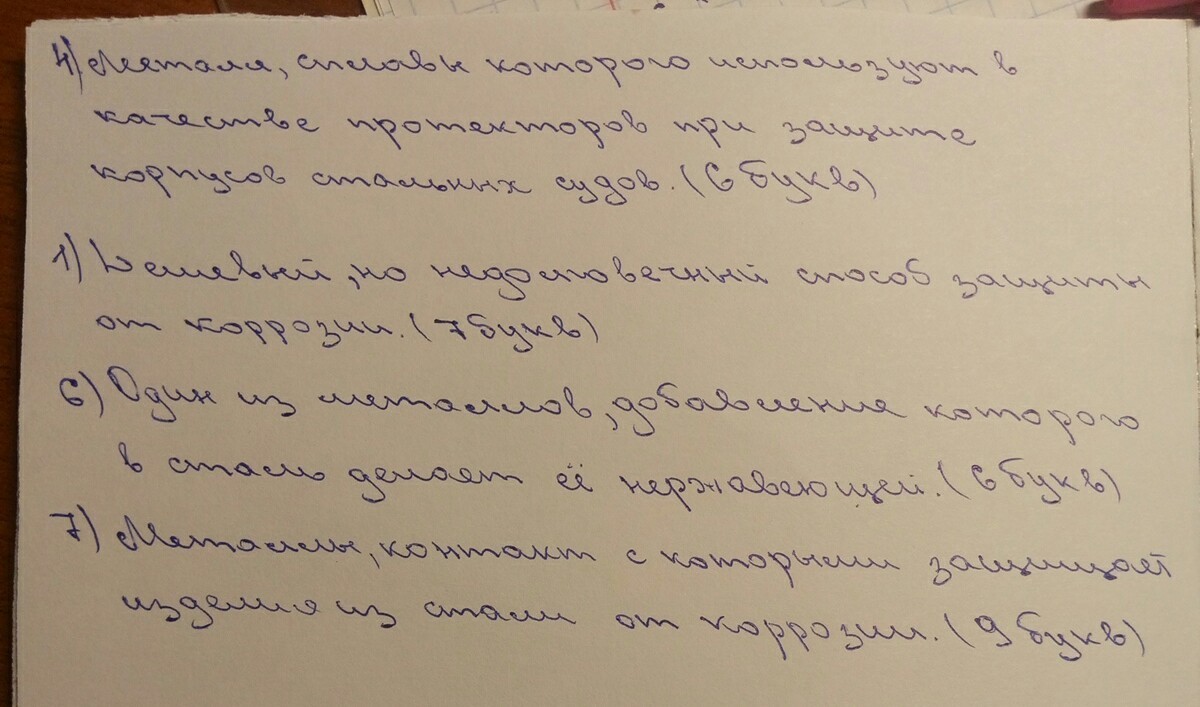 4) Металл, сплавы которого используют в
качестве протекторов при защите
корпусов стальных судов. (6 букв)
1) Дешевый, но недолговечный способ защиты
от коррозии. (7 букв)
6) Один из металлов, добавление которого
в сталь делает её нержавеющей. (6 букв)
7) Металлы, контакт с которыми защищает
изделия из стали от коррозии. (9 букв)